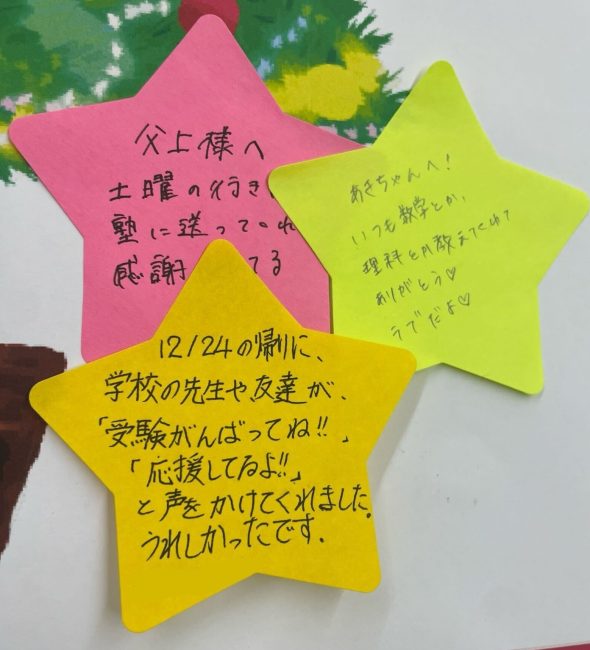 父上様へ
土曜の行き
塾に送って
感謝 てる
あきちゃんへ!
いつも数学とか、
理科とか教えてくれて
ありがとう♡
ラブだよ♡
12/24の帰りに、
学校の先生や友達が、
「受験がんばってね!!」
「応援してるよ!!」
と声をかけてくれました。
うれしかったです.